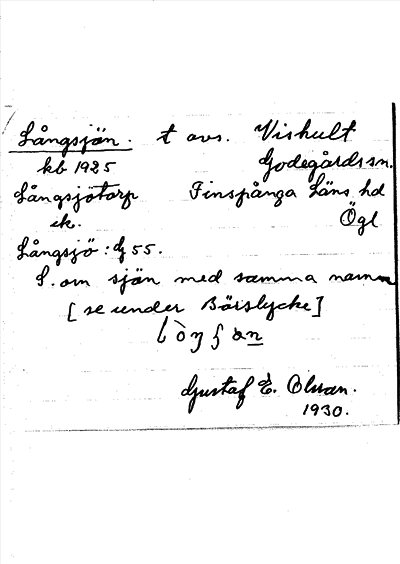 Långsjön. t avs. Viskult
kb 1925 Godegårds sn.
Långsjötorp Finspånga Läns hd
ek. Ögl
Långsjö: dj 55.
S. om sjön med samma namn
[se under Böislycke]
Gustaf E. Olsson.
1930.